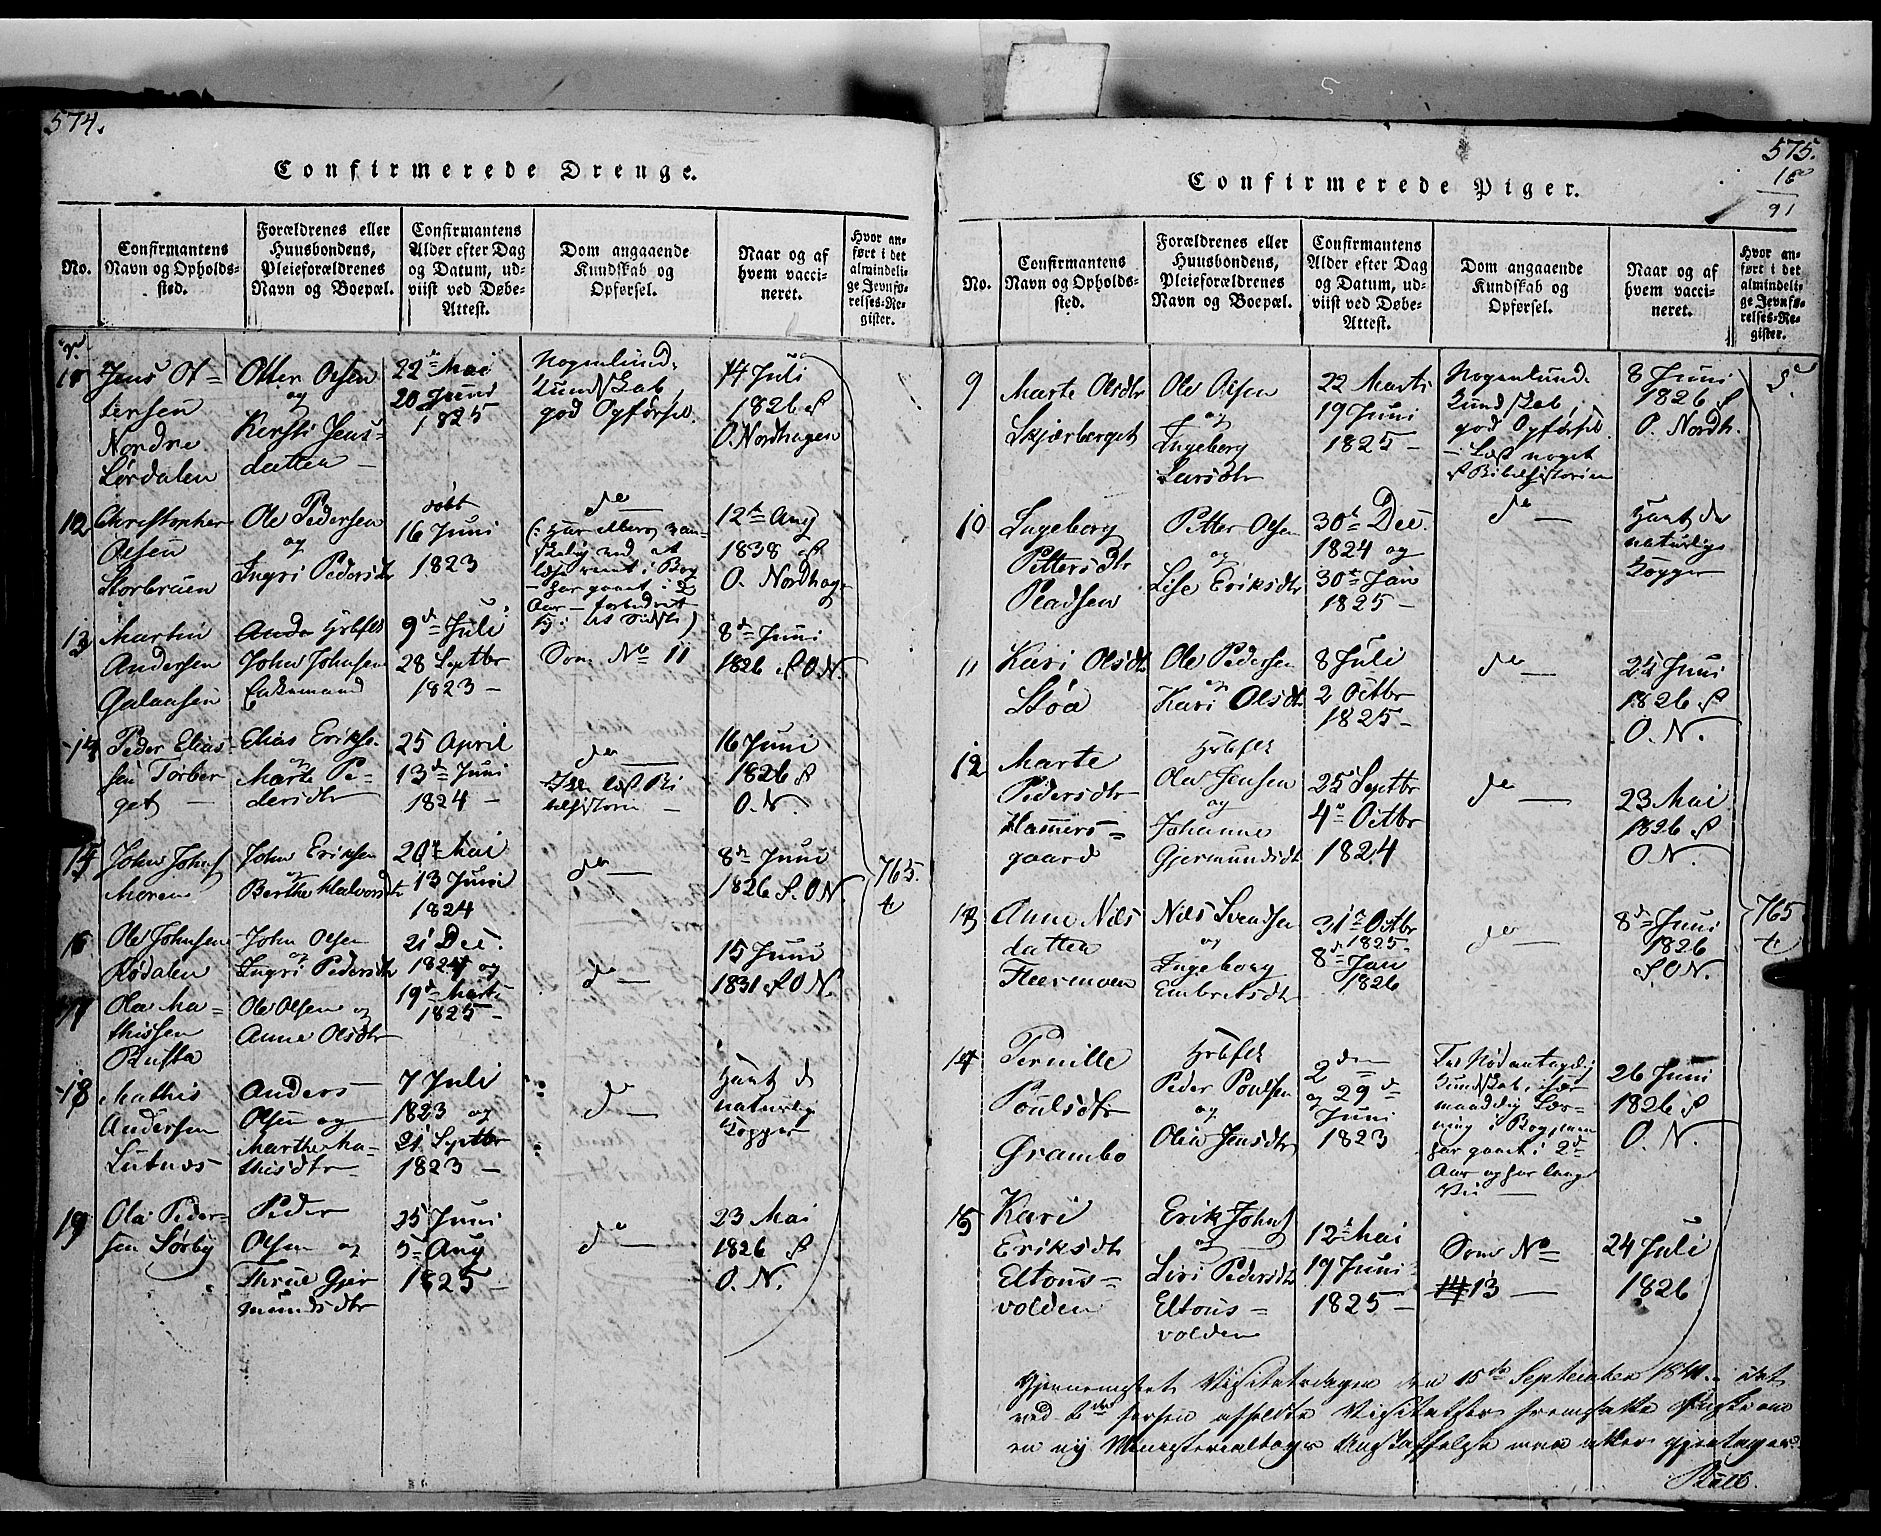 574.
Confirmerede Drenge.
No.
Confirmantens
Navn og Opholds-
sted.
Forældrenes eller
Huusbondens,
Pleieforældrenes
Navn og Boepæl.
Confirmantens
Alder efter Dag
og Datum, ud-
viist ved Døbe-
Attest.
Dom angaaende
Kundskab og
Opførsel.
Naar og af
hvem vacci-
neret.
Hvor an-
ført i det
almindeli-
ge Jevnfø-
relses-Re-
gister.
Jens Ot-
tersen
Nordre
Lørdalen
Otter Olsen
og
Kersti Jens-
datter
22de Mai
20 Juni
1825
Nogenlund.
Kundskab,
god Opførsel.
14 Juli
1826 af
O. Nordhagen
12
Christopher
Olsen
Storbrüen
Ole Pedersen
og
Ingri Pedersdtr
døbt
16 Juni
1823
do
12te Aug
1838 af
O. Nordhag
13
Martin
Andersen
Galaasen
John Johnsen
Enkemand
9de Juli
28 Septbr
1823
Som No 11
8de Juni
1826 af O.N.
14
Peder Elias-
sen Tørber-
get
Elias Eriks.
og
Marte Pe-
dersdtr
25 April
13de Juni
1824
do
16 Juni
1826 af
O.N.
15
John Johns
Moren
John Eriksen
og
Berthe Halvorsdtr
20de Mai
13 Juni
1824
do
8de Juni
1826 af O.N.
765.
16
Ole Johnsen
Rødalen
John Olsen
og
Ingri Pedersdtr
21 Dec.
1824 og
19de Marts
1825
do
15 Juni
1831 af O.N.
17
Ola Ma-
thissen
Busta
Ole Olsen og
Anne Olsdtr
18
Mathis
Andersen
Lutnæs
Anders
Olsen og
Marthe Ma-
thisdtr
7 Juli
1823 og
21 Septbr
1823
do
Havt de
naturlige
Kopper
19
Ola Peder-
sen Sørby
Peder
Olsen og
Thrue Gjer
mundsdtr
25 Juni
5te Aug
1825
do
23 Mai
1826 af
O.N.
575.
91
Confirmerede Piger.
No.
Confirmantens
Navn og Opholds-
sted.
Forældrenes eller
Huusbondens,
Pleieforældrenes
Navn og Boepæl.
Confirmantens
Alder efter Dag
og Datum, ud-
viist ved Døbe-
Attest.
Dom angaaende
Kundskab og
Opførsel.
Naar og af
hvem vacci-
neret.
Hvor an-
ført i det
almindeli-
ge Jevnfø-
relses-Re-
gister.
9
Marte Olsdtr
Skjærberget
Ole Olsen
og
Ingeborg
Larsdtr
22 Marts
19 Juni
1825
Nogenlund.
Kundskab,
god Opførsel
Læst noget
af Bibelhistorien
8 Juni
1826 af
O. Nordh.
10
Ingeborg
Pittersdtr
Pladsen
Petter Olsen
og
Lise Eriksdtr
30te Dec.
1824 og
30te Jan
1825
do
Havt de
naturlige
Kopper
11
Kari Olsdtr
Støa
Ole Pedersen
og
Kari Olsdtr
8 Juli
2 Octbr
1825
do
24 Juni
1826 af
O.N.
12
Marte
Pedersdtr
Hammers-
gaard
Ola Jensen
og
Johanne
Gjermundsdtr
25 Septbr
4de Octbr
1824
do
23 Mai
1826 af
O.N.
13
Anne Nils
datter
Fleermoen
Nils Svendsen
og
Ingeborg
Embretsdtr
31te Octbr
1825
8de Jan
1826
do
8de Juni
1826
af O.N.
765
14
Pernille
Poulsdtr
Ørambo
Peder Poulsen
og
Olia Jensdtr
2den
og 29de
Juni
1823
26 Juni
1826 af
O.N.
15
Kari
Eriksdtr
Eltons-
volden
Erik Johns
og
Siri Pedersdtr
Eltons-
volden
12te Mai
19 Juni
1825
Som No
13
24 Juli
1826